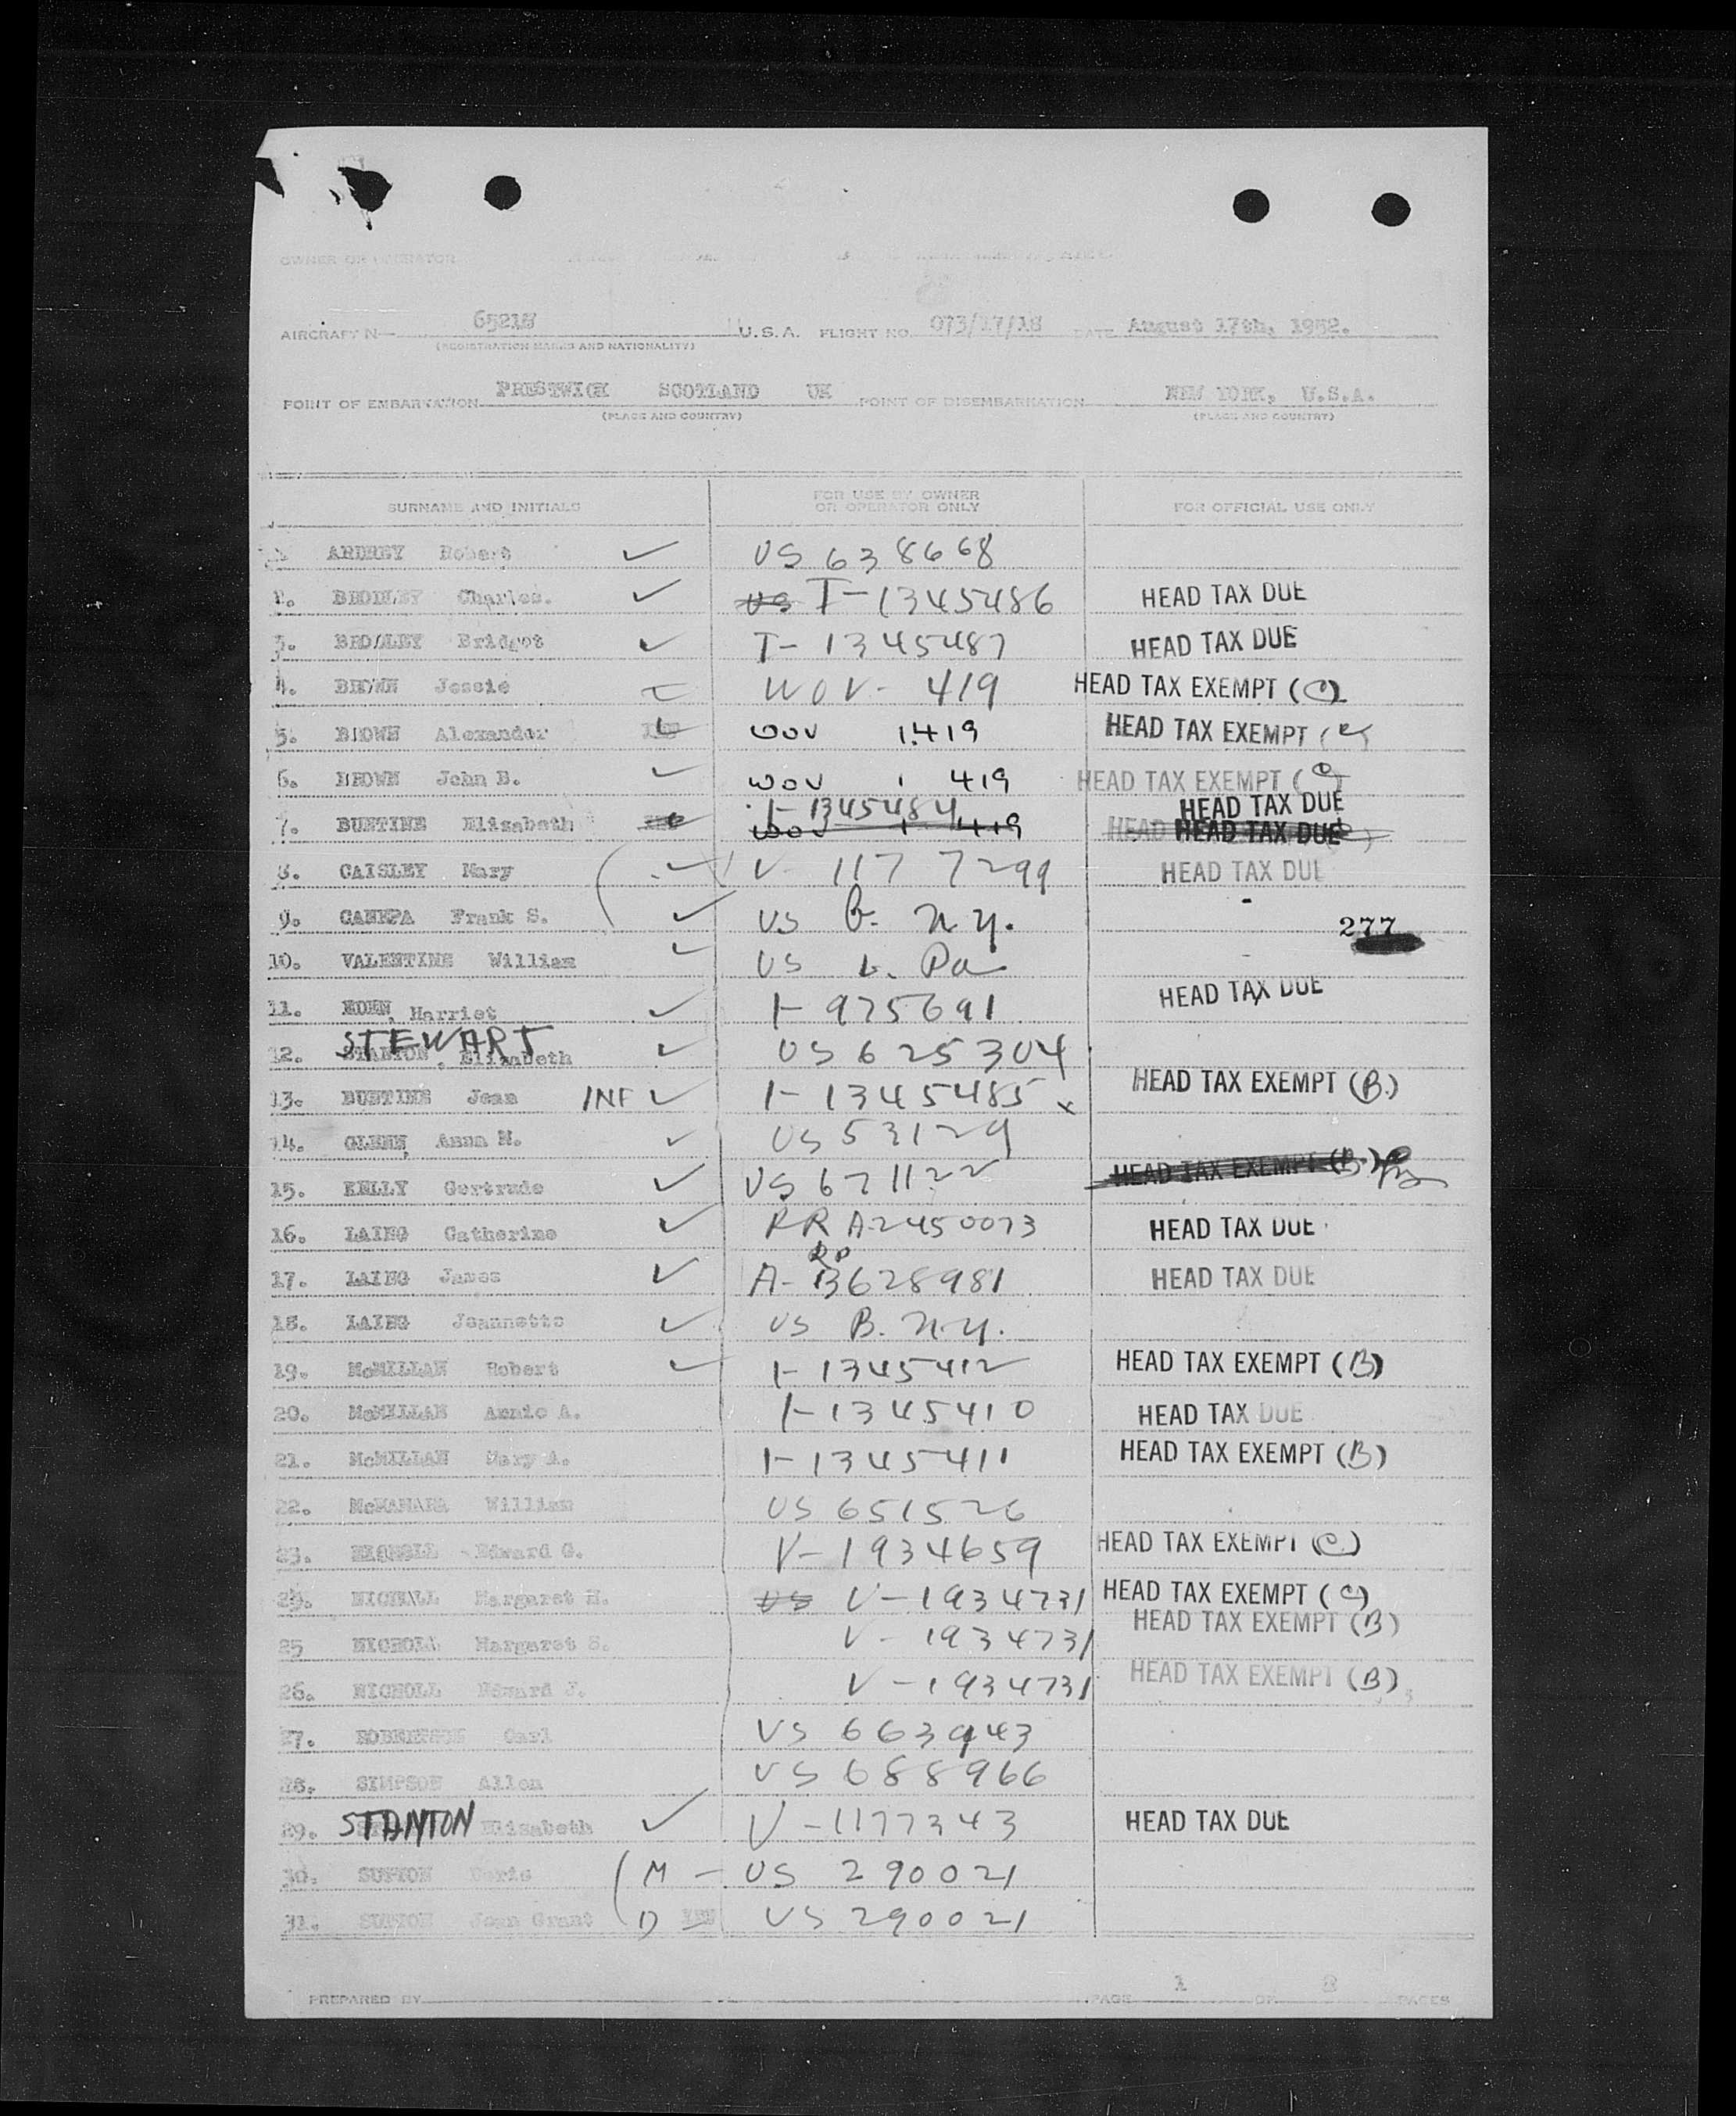 OWNER OR OPERATOR
AIRCRAFT N— 65218 U.S.A. FLIGHT NO. 073/17/18 DATE August 17th, 1952.
(REGISTRATION MARKS AND NATIONALITY)
POINT OF EMBARKATION PRESTWICK SCOTLAND UK POINT OF DISEMBARKATION NEW YORK, U.S.A.
(PLACE AND COUNTRY) (PLACE AND COUNTRY)
SURNAME AND INITIALS FOR USE BY OWNER OR OPERATOR ONLY FOR OFFICIAL USE ONLY
ARDREY Robert US 638668
Charles. US T-1345486 HEAD TAX DUE
3. Bridget T-1345487 HEAD TAX DUE
4. BROWN Jessie WOV- 419 HEAD TAX EXEMPT (C)
5. BROWN Alexander WOV 1419 HEAD TAX EXEMPT
6. BROWN John B. WOV 1 419 HEAD TAX EXEMPT (C)
I-1345484 HEAD TAX DUE
7. BUNTINE Elizabeth WOV 1 419 HEAD TAX DUE
8. CAISLEY Mary V- 1177299 HEAD TAX DUE
9. CANEPA Frank S. US B. N.Y. 277
10. VALENTINE William US Pa
11. Harriet I-975691 HEAD TAX DUE
12. STEWART Elizabeth US 625304
13. BUNTINE Jean INF I-1345485 x HEAD TAX EXEMPT (B.)
14. GLENN, Anna M. US 53129
15. KELLY Gertrude US 671122 HEAD TAX EXEMPT (B.)
16. LAING Catherine RR A-2450073 HEAD TAX DUE
17. LAING James A-3628981 HEAD TAX DUE
18. LAING Jeannette US B. N.Y.
19. McMILLAN Robert I-1345412 HEAD TAX EXEMPT (B)
20. McMILLAN Annie A. I-1345410 HEAD TAX DUE
21. McMILLAN Mary A. I-1345411 HEAD TAX EXEMPT (B)
22. McNAMARA William US 651526
23. NICHOLL Edward G. V-1934659 HEAD TAX EXEMPT (C)
NICHOLL Margaret H. US V-1934731 HEAD TAX EXEMPT (C)
25 NICHOLL Margaret S. V-1934731 HEAD TAX EXEMPT (B)
26. NICHOLL Edward J. V-1934731 HEAD TAX EXEMPT (B)
27. Carl US 663943
28. SIMPSON Allen US 688966
29. STANTON Elizabeth V-1177343 HEAD TAX DUE
30. SUTTON Doris M - US 290021
31. SUTTON Joan Grant D INF US 290021
PREPARED BY PAGE 1 OF 2 PAGES